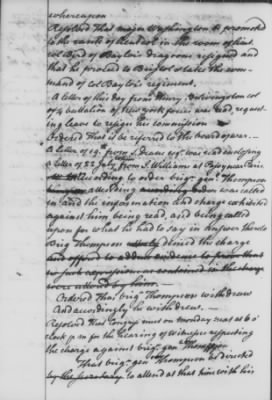 whereupon
Resolved That major Washington be promoted
to the rank of lieut col in the room of lieut
col Byrd of Baylor's dragoons resigned and
that he proceed to Bristol & take the com-
mand of col Baylor's regiment.
A letter of this day from Henry B. Livingston col
of 4 battalion of New york forces was read, reques-
ting leave to resign his commission
Ordered That it be referred to the board of war.
A letter of 19th from S. Deane esqr. was read inclosing
a letter of 22 July from J. Williams at Passy near Paris.
According to order brigr. genl. Thompson
attending was called
in and the information and charge exhibited
against him being read, and being called
upon for what he had to say in answer thereto
Brig Thompson denied the charge
and offered to adduce evidence to prove that
no such expressions as contained in the charge
were uttered by him.
Ordered That brigr. Thompson withdraw
And accordingly he withdrew.
Resolved That Congress meet on monday next at 6 o'
clock p m for the hearing of witnesses respecting
the charge against brigr. gen Thompson
That brigr. gen Thompson be directed
by the secretary to attend at that time with his